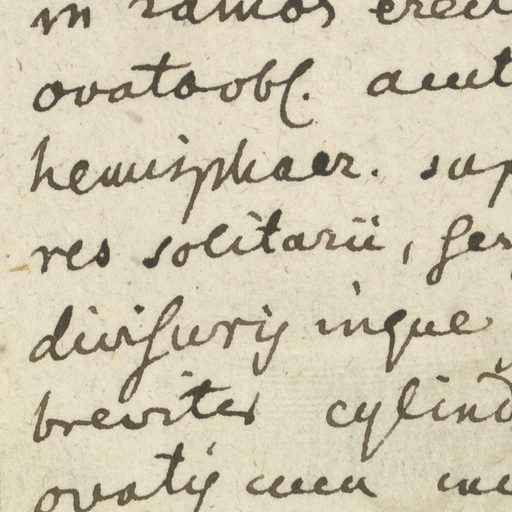 in ramos erect
ovatoobl. acut
hemisphaer. sup
res solitarii, ger
divisuris inque
breviter cylind
ovatis cum